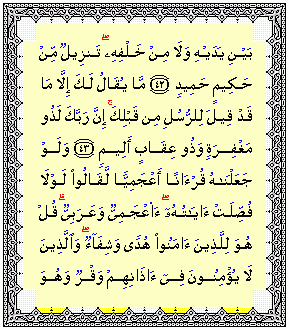 بَيْنِ يَدَيْهِ وَلَا مِنْ خَلْفِهِۦۖ تَنزِيلٌ مِّنْ
حَكِيمٍ حَمِيدٍ ﴿٤٢﴾ مَّا يُقَالُ لَكَ إِلَّا مَا
قَدْ قِيلَ لِلرُّسُلِ مِن قَبْلِكَۚ إِنَّ رَبَّكَ لَذُو
مَغْفِرَةٍ وَذُو عِقَابٍ أَلِيمٍ ﴿٤٣﴾ وَلَوْ
جَعَلْنَٰهُ قُرْءَانًا أَعْجَمِيًّا لَّقَالُوا۟ لَوْلَا
فُصِّلَتْ ءَايَٰتُهُۥٓۖ ءَا۬عْجَمِىٌّ وَعَرَبِىٌّۗ قُلْ
هُوَ لِلَّذِينَ ءَامَنُوا۟ هُدًى وَشِفَآءٌۖ وَٱلَّذِينَ
لَا يُؤْمِنُونَ فِىٓ ءَاذَانِهِمْ وَقْرٌ وَهُوَ